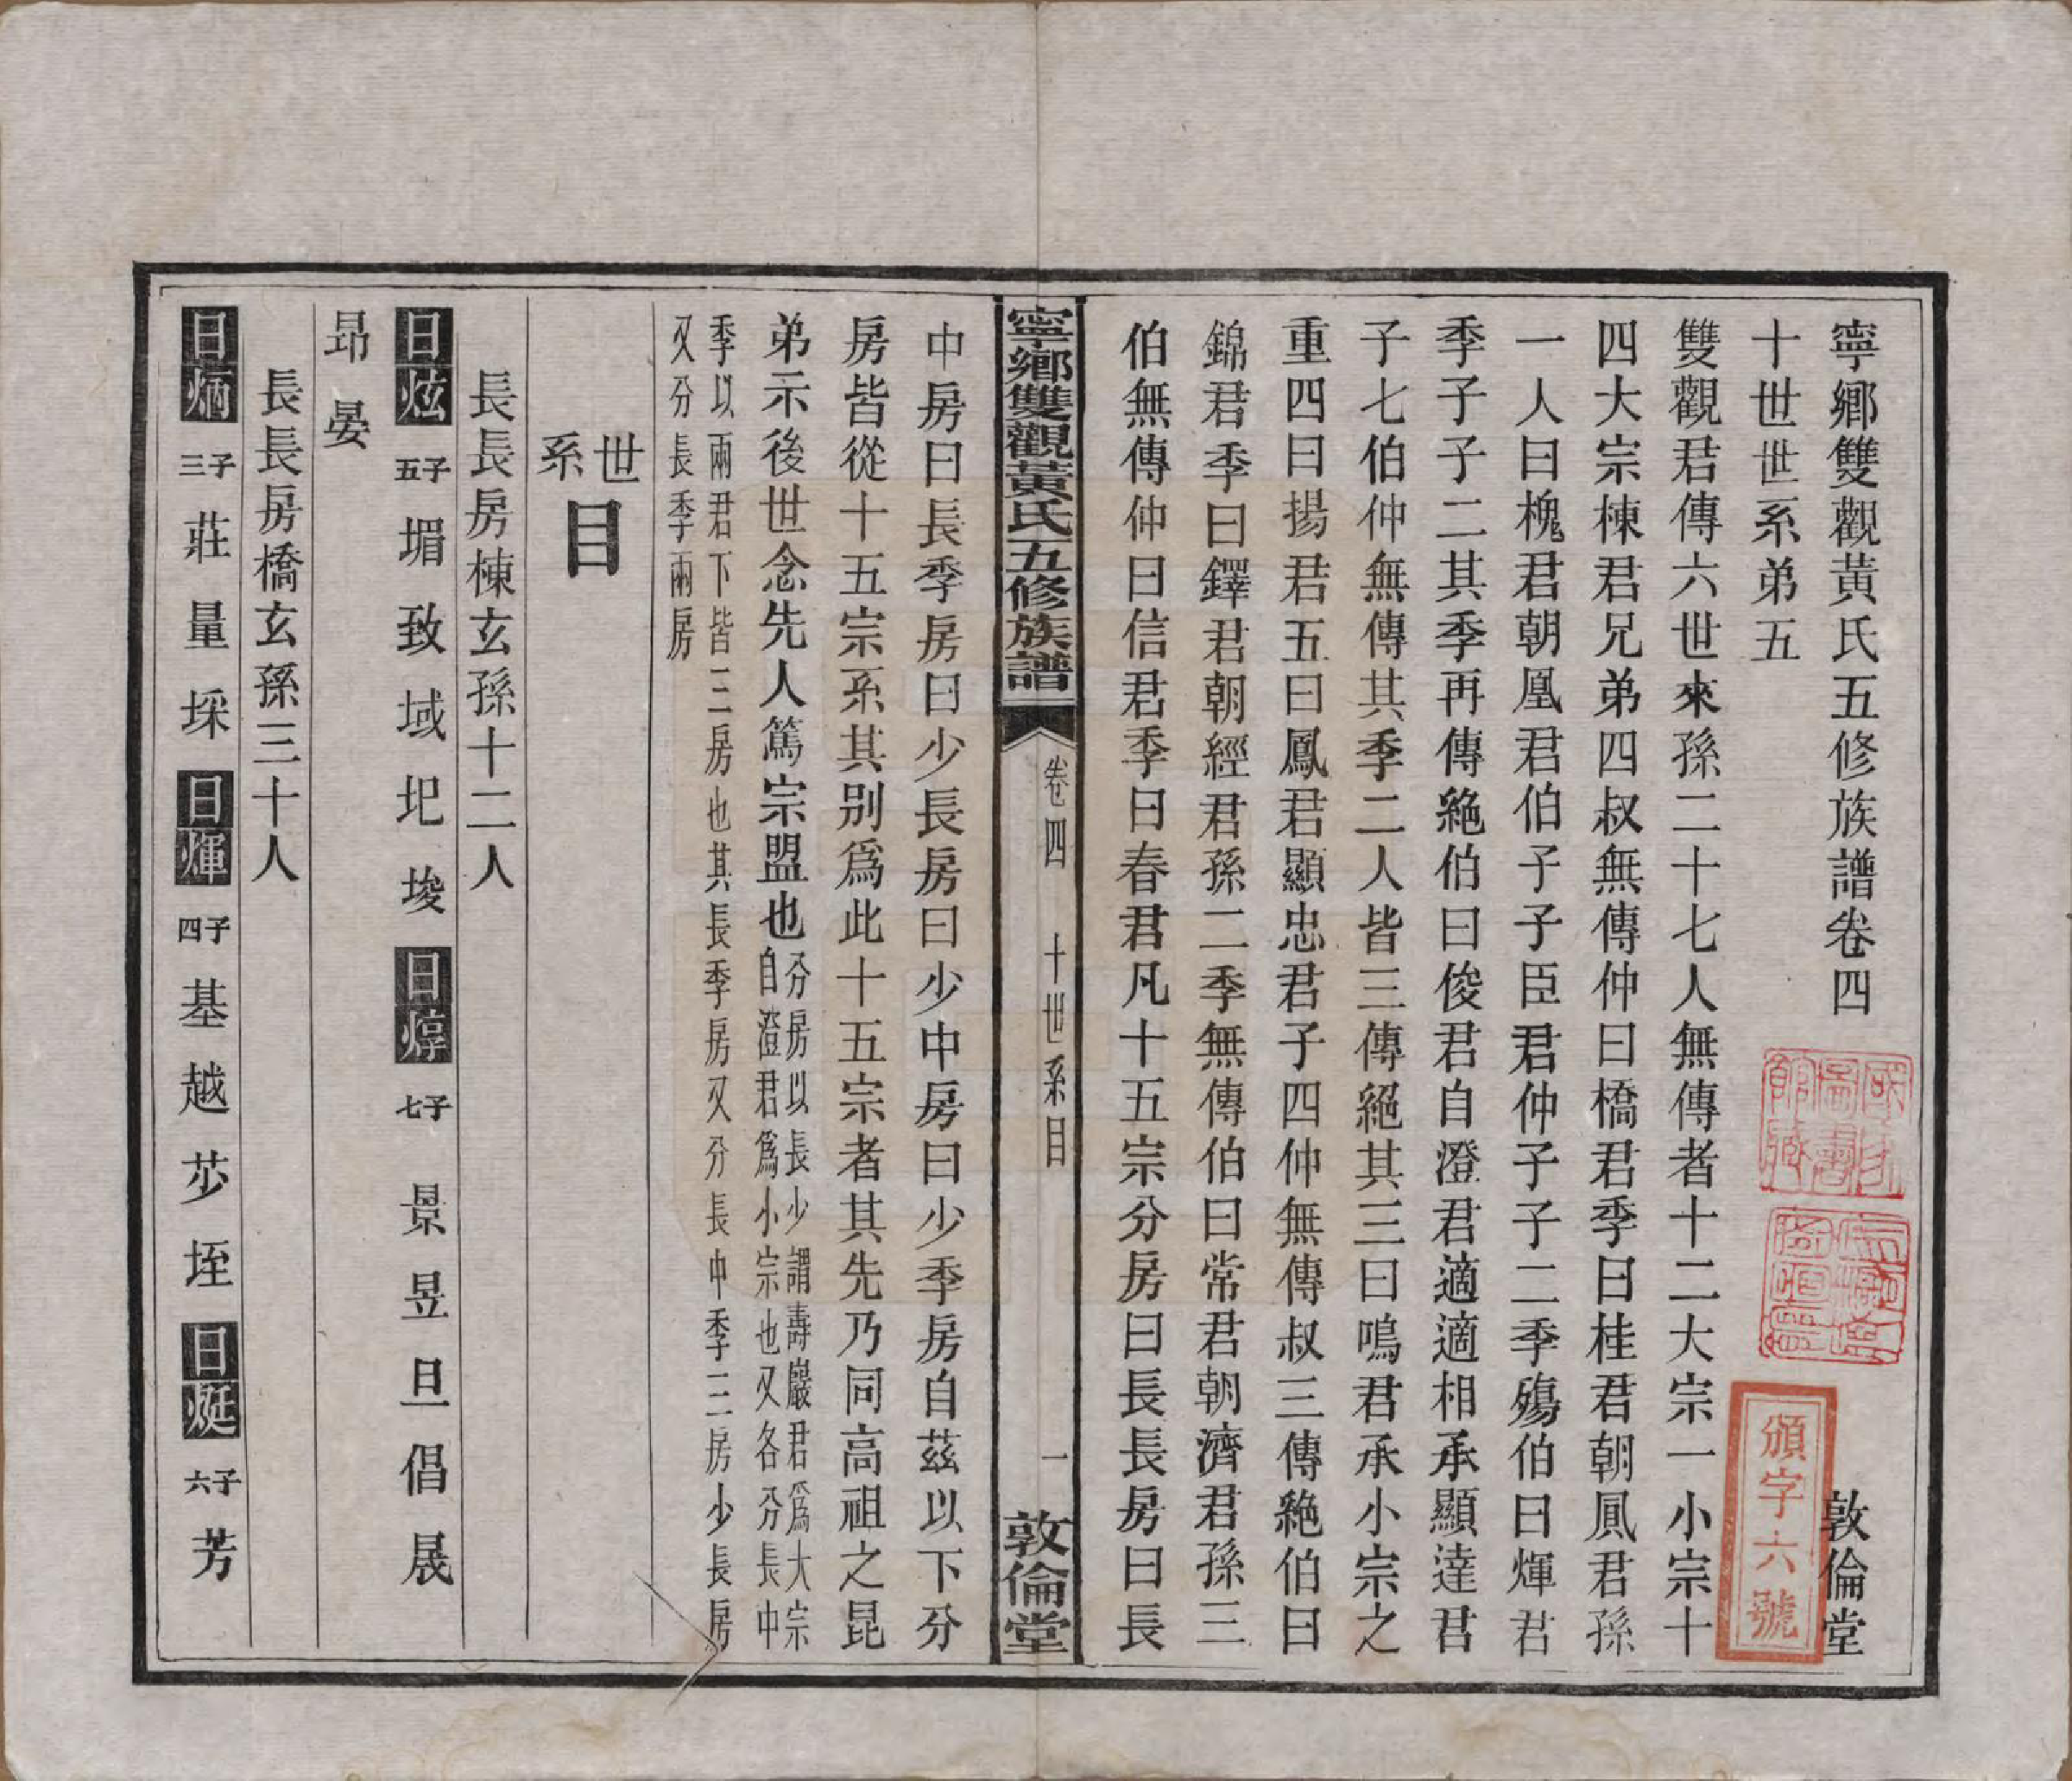 寧鄉雙觀黃氏五修族譜卷四
敦倫堂
十世世系弟五
雙觀君傳六世來孫二十七人無傳者十二大宗一小宗十
四大宗棟君兄弟四叔無傳仲曰橋君季曰桂君朝鳳君孫
一人曰槐君朝凰君伯子子臣君仲子子二季殤伯曰煇君
季子子二其季再傳絶伯曰俊君自澄君適適相承顯達君
子七伯仲無傳其季二人皆三傳絕其三曰鳴君承小宗之
重四曰揚君五曰鳳君顯忠君子四仲無傳叔三傳絶伯曰
錦君季曰鐸君朝經君孫二季無傳伯曰常君朝濟君孫三
伯無傳仲曰信君季曰春君凡十五宗分房曰長長房曰長
寧鄉雙觀黃氏五修族譜
卷四
十世系目
一
敦倫堂
中房曰長季房曰少長房曰少中房曰少季房自茲以下分
房皆從十五宗系其別爲此十五宗者其先乃同高祖之昆
弟示後世念先人篤宗盟也
分房以長少謂壽巖君爲大宗
自澄君爲小宗也又各分長中
季以兩君下皆三房也其長季房又分長中季三房少長房
又分長季兩房
世系
目
長長房棟玄孫十二人
日炫 子五 堳 致 域 圯 埈 日焞 子七 景 昱 旦 倡 晟
昻 晏
長長房橋玄孫三十人
日炳 子三 莊 量 埰 日煇 子四 基 越 芕 垤 日烶 子六 芳
國家圖書館藏
頒字六號